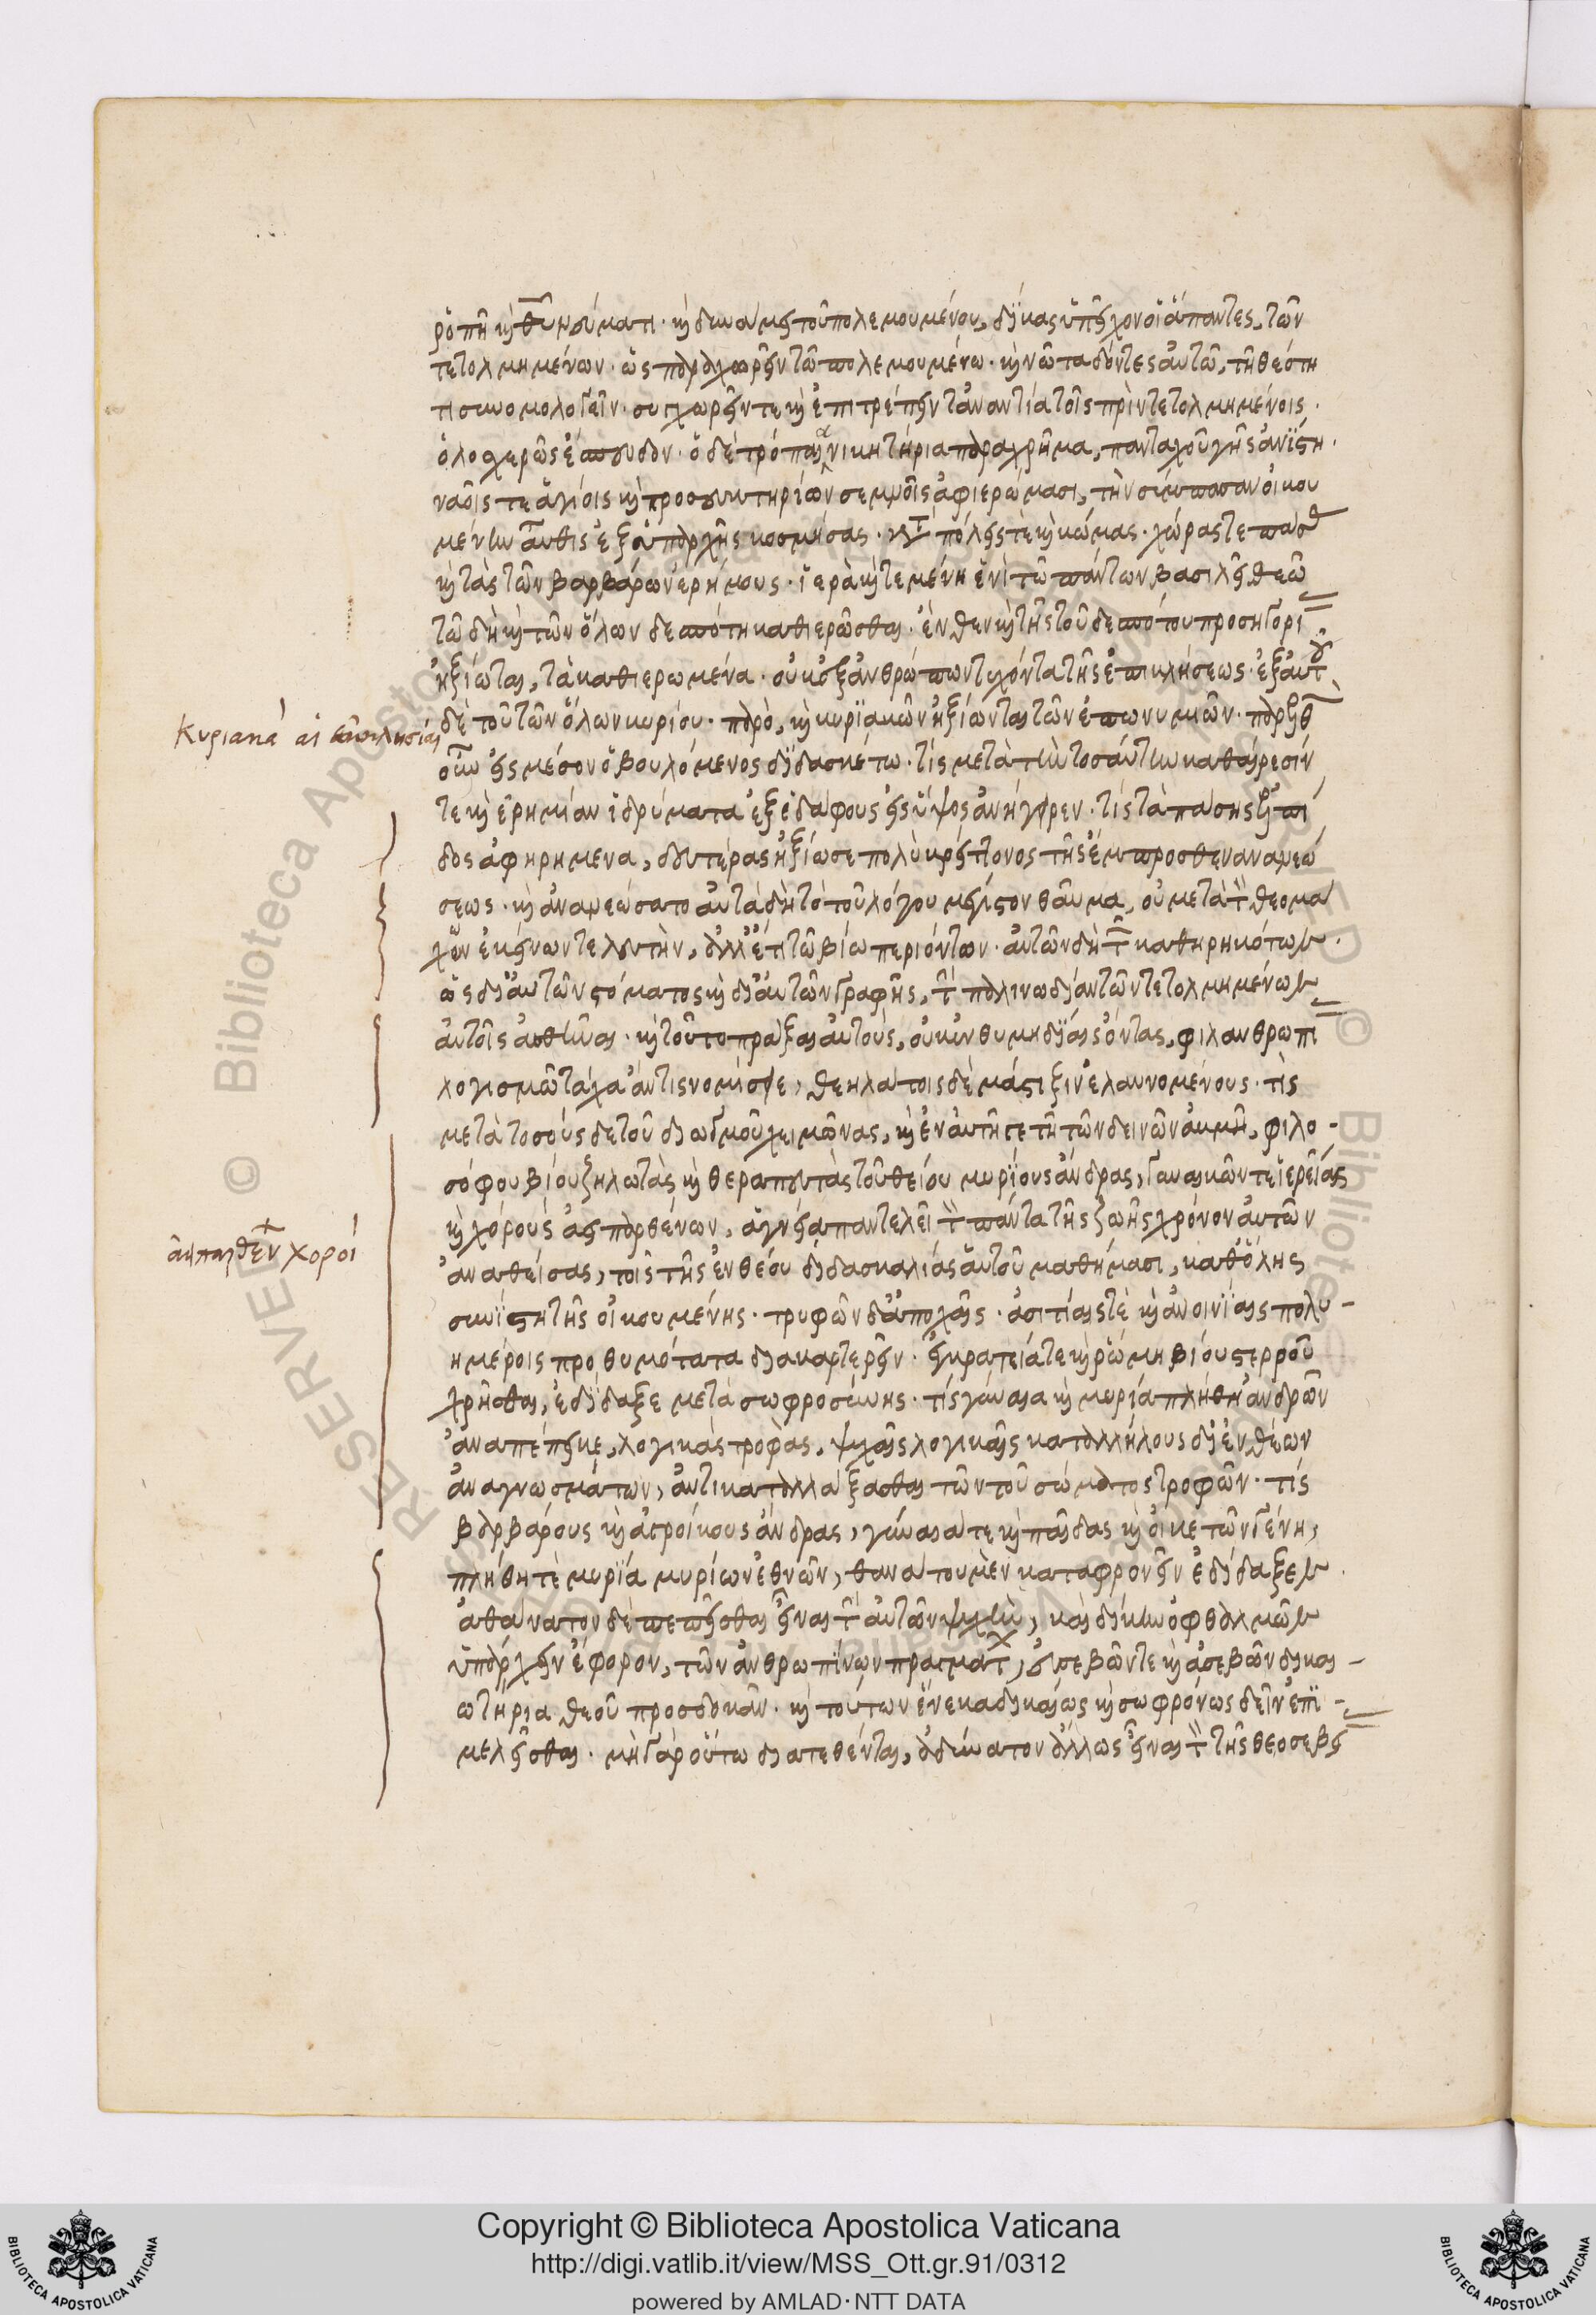 ῥοπῇ καὶ θεοῦ νεύματι· καὶ δυνάμει τοῦ πολεμουμένου, δίκας ὑπεῖχον οἱ ἅπαντες, τῶν
τετολμημένων· ὡς παραχωρεῖν τῷ πολεμουμένῳ· καὶ νῶτα δόντες αὐτῷ, τὴν θεότη
τι συνομολογεῖν· συγχωρεῖν τε καὶ ἐπιτρέπειν τἀναντία τοῖς πρὶν τετολμημένοις·
ὁλοσχερῶς ἔσπευδον· ὁ δὲ τρόπαια νικητήρια παραχρῆμα, πανταχοῦ γῆς ἀνίστη·
ναοῖς τε ἁγίοις καὶ προσευκτηρίων σεμνοῖς ἀφιερώμασι, τὴν σύμπασαν οἰκου
μένην αὖθις ἐξ ὑπαρχῆς κοσμήσας· κατὰ πόλεις τε καὶ κώμας· χώρας τε πάσας
καὶ τὰς τῶν βαρβάρων ἐρήμους· ἱερὰ καὶ τεμένη ἑνὶ τῷ πάντων βασιλεῖ θεῷ
τῷ δὴ καὶ τῶν ὅλων δεσπότῃ καθιερῶσθαι· ἔνθεν καὶ τῆς τοῦ δεσπότου προσηγορίας
Κυριακὰ αἱ ἐκκλησίαι
ἠξίωται, τὰ καθιερωμένα· οὐκ ἐξ ἀνθρώπων τυχόντα τῆς ἐπικλήσεως· ἐξ αὐτοῦ
δὲ τοῦ τῶν ὅλων κυρίου· παρὸ, καὶ κυριακῶν ἠξίωνται τῶν ἐπωνυμιῶν· παρελθὼν
οὖν εἰς μέσον ὁ βουλόμενος διδασκέτω· τίς μετὰ τὴν τοσαύτην καθαίρεσίν
τε καὶ ἐρημίαν ἱδρύματα ἐξ ἐδάφους εἰς ὕψος ἀνήγειρεν· τίς τὰ πάσης ἐλπί
δος ἀφῃρημένα, δευτέρας ἠξίωσε πολὺ κρείττονος τῆς ἔμπροσθεν ἀνανεώ
σεως· καὶ ἀνανεώσατο αὐτὰ δὴ τὸ τοῦ λόγου μέγιστον θαῦμα, οὐ μετὰ τὴν θεομά
χων ἐκείνων τελευτὴν, ἀλλ' ἔτι τῷ βίῳ περιόντων· αὐτῶν δὴ τῶν καθῃρηκότων·
ὡς δι' αὐτῶν στόματος καὶ δι' αὐτῶν γραφῆς, τὴν παλινῳδίαν τῶν τετολμημένων
αὐτοῖς ἀσθῆναι· καὶ τοῦτο πρᾶξαι αὐτοὺς, οὐκ ἐν θυμηδίαις ὄντας, φιλανθρωπίας
λογισμῷ τάχα ἄν τις νομίσειε, θεηλάτοις δὲ μάστιξιν ἐλαυνομένους· τίς
μετὰ τοσούσδε τοῦ διωγμοῦ χειμῶνας, καὶ ἐν αὐτῇ γε τῇ τῶν δεινῶν ἀκμῇ, φιλο-
σόφου βίου ζηλωτὰς καὶ θεραπευτὰς τοῦ θείου μυρίους ἄνδρας, γυναικῶν τε ἱερείας
αἱ παρθένων χοροί
καὶ χοροὺς ἀειπαρθένων, ἁγνείᾳ παντελεῖ τὸν πάντα τῆς ζωῆς χρόνον αὐτῶν
ἀναθείσας, τοῖς τῆς ἐνθέου διδασκαλίας αὐτοῦ μαθήμασι, καθ' ὅλης
συνίστη τῆς οἰκουμένης· τρυφῶν δ' ἀποχαῖς· ἀσιτίαις τὲ καὶ ἀοινίαις πολυ-
ημέροις προθυμότατα διακαρτερεῖν· ἐγκρατείᾳ τε καὶ ῥώμῃ βίου στερροῦ
χρῆσθαι, ἐδίδαξε μετὰ σωφροσύνης· τίς γύναια καὶ μυρία πλήθη ἀνδρῶν
ἀναπέπεικε, λογικὰς τροφὰς, ψυχαῖς λογικαῖς καταλλήλους δι' ἐνθέων
ἀναγνωσμάτων, ἀντικαταλλάξασθαι τῶν τοῦ σώματος τροφῶν· τίς
βαρβάρους καὶ ἀγροίκους ἄνδρας, γύναιά τε καὶ παῖδας καὶ οἰκετῶν γένη,
πλήθη τὲ μυρία μυρίων ἐθνῶν, θανάτου μὲν καταφρονεῖν ἐδίδαξεν·
ἀθάνατον δὲ πεπεῖσθαι εἶναι τὴν αὐτῶν ψυχὴν, καὶ δίκην ὀφθαλμῶν
ὑπάρχειν ἔφορον, τῶν ἀνθρωπίνων πραγμάτων, εὐσεβῶν τε καὶ ἀσεβῶν δικαι-
ωτήρια θεοῦ προσδοκᾶν· καὶ τούτων ἕνεκα δικαίως καὶ σωφρόνως δεῖν ἐπι-
μελεῖσθαι· μὴ γὰρ οὕτω διατεθέντας, ἀδύνατον ἄλλως εἶναι τὸν τῆς θεοσεβεί
Copyright © Biblioteca Apostolica Vaticana
http://digi.vatlib.it/view/MSS_Ott.gr.91/0312
powered by AMLAD·NTT DATA